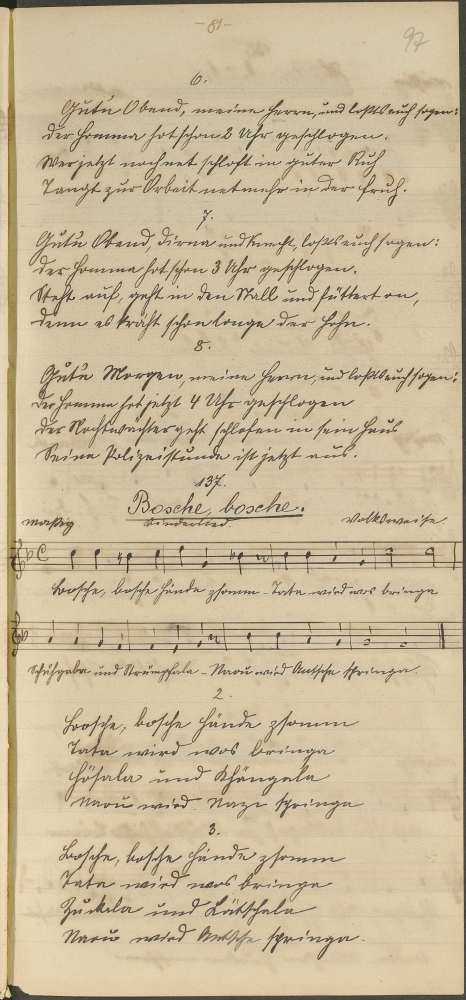 - 81 -
97
6.
Gutn Obend, meine Herrn, und loßts euch sogen:
Der Homma hot schon 2 Uhr geschlogen.
Wer jetzt noch net schloft in guter Ruh
Taugt zur Orbeit netmehr in der Fruh.
7.
Gutn Obend, Dirna und Knecht, loßts euch sogen:
Der Homma hot schon 3 Uhr geschlogen.
Steht auf, geht in den Stall und füttert on,
Denn es kräht schon longe der Hohn.
8.
Gutn Morgen, meine Herrn, und loßts euch sogen:
Der Homma hot jetzt 4 Uhr geschlogen
Der Nochtwachter geht schlofen in sein Haus
Seine Polizeistunde ist jetzt aus.
137.
Bosche, bosche.
mäßig Kinderlied. Volksweise.
Bosche, bosche Hände zsomm - Tata wird wos bringa
Schuhgala und Strümpfala - Naou wird Antsche springa.
2.
Bosche, bosche Hände zsomm
Tata wird wos bringa
Hösala und Khängala
Naou wird Nazi springa
3.
Bosche, bosche Hände zsomm
Tata wird wos bringa
Zuckala und Lätschala
Naou wird Antsche springa.